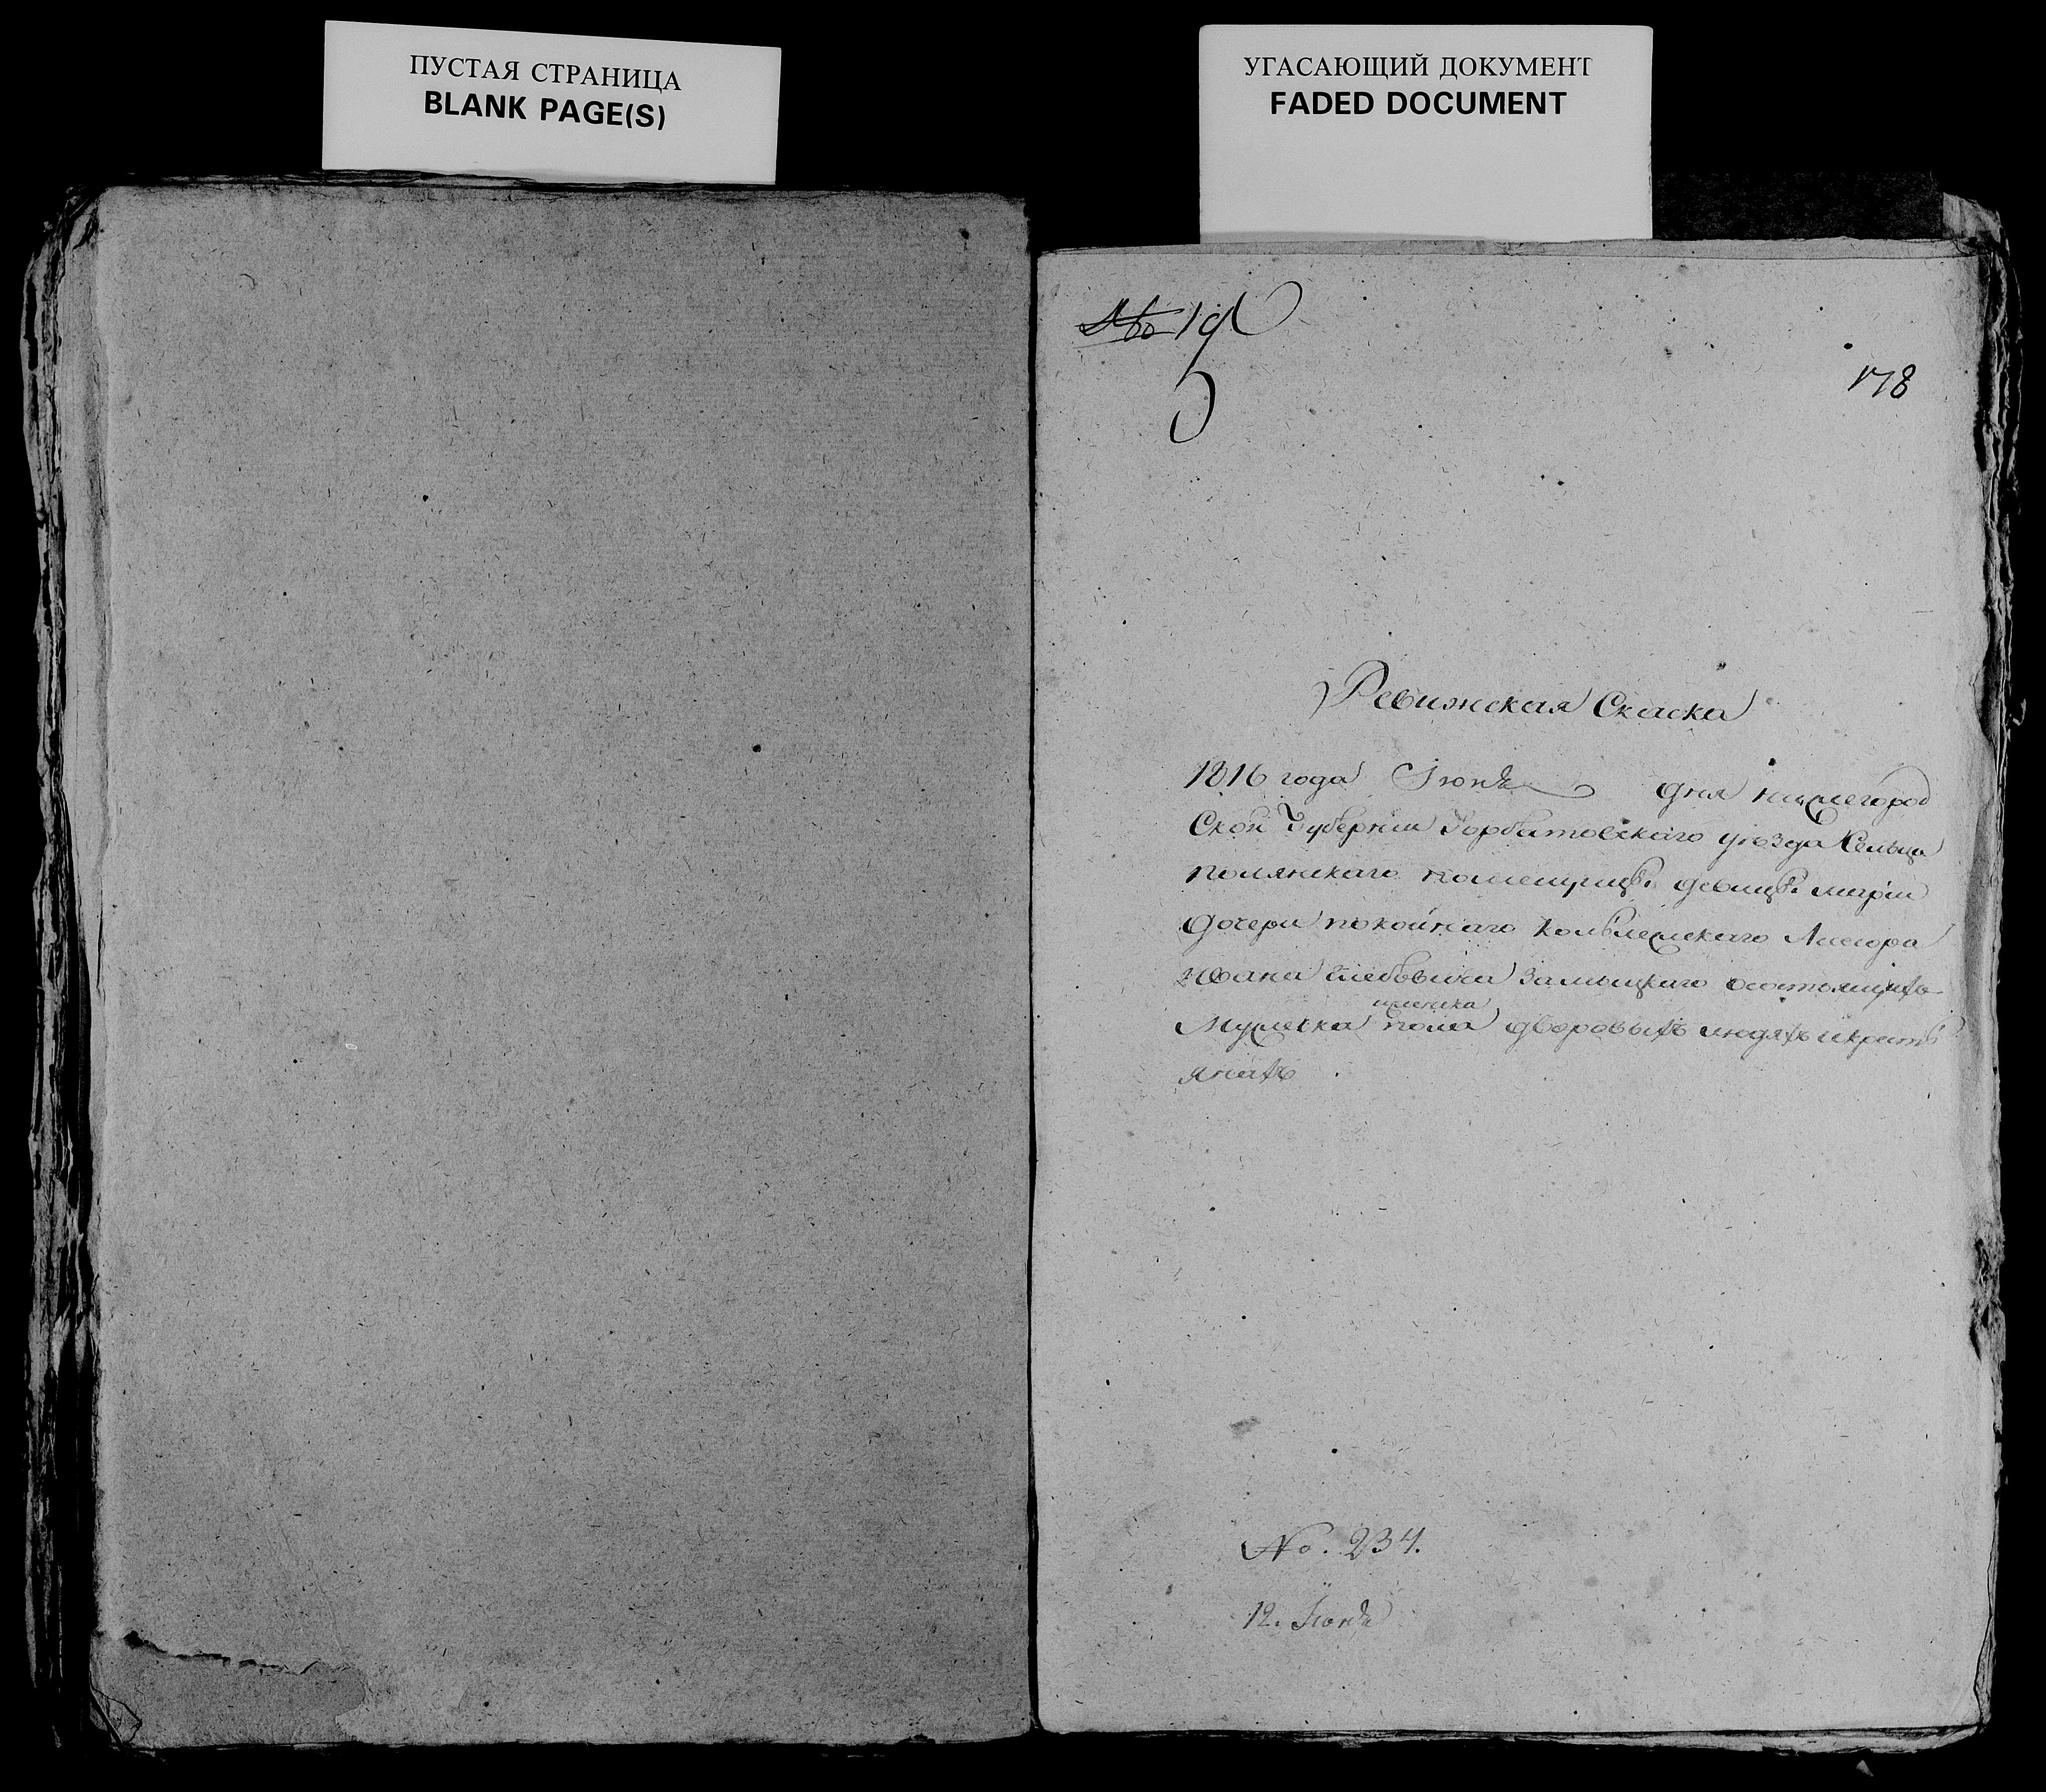 ПУСТАЯ СТРАНИЦА
BLANK PAGE(S)
УГАСАЮЩИЙ ДОКУМЕНТ
FADED DOCUMENT
178
Ревижская Скаска
1816 года Июня дня нижегород
Ской Губернии Горбатовскаго уезда Сельца
полянскаго помещицы девицы марьи
дочери покойнаго колележскаго Ассесора
ивана глебовича Замыцкаго состоящихъ
иженска
Мужеска пола дворовыхъ людяхъ икресть
янахъ
No. 234.
12. Июня